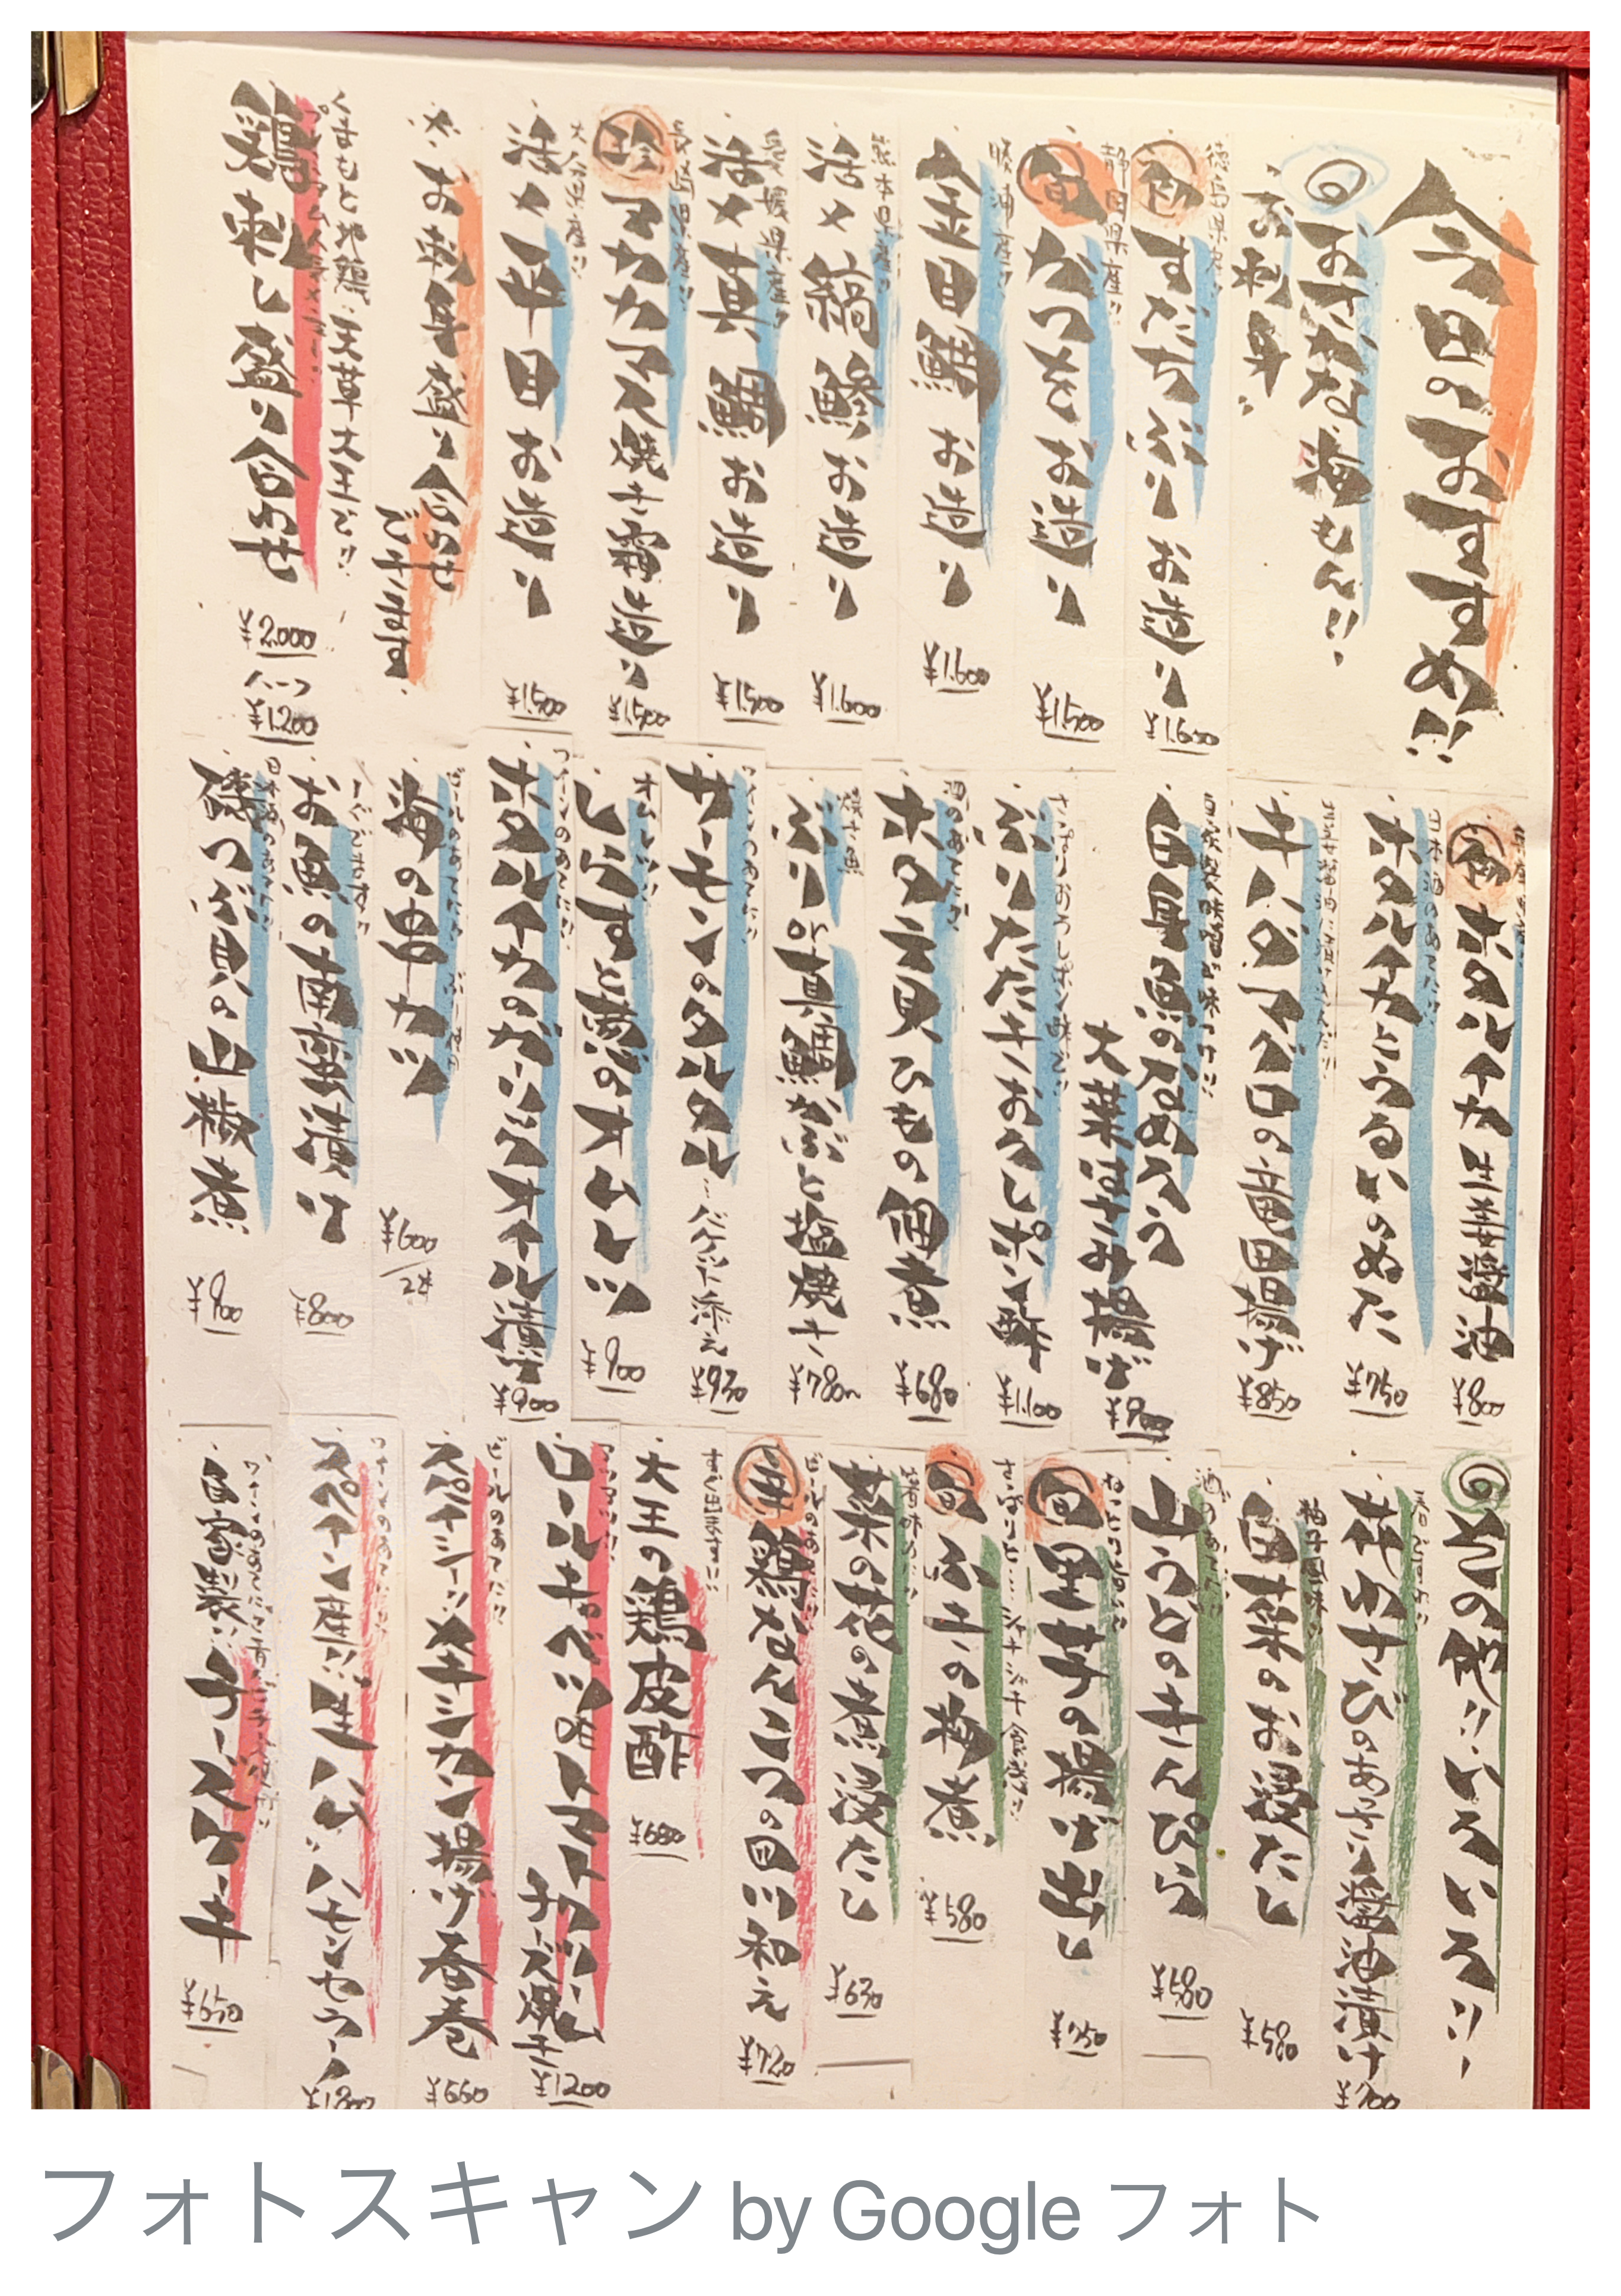 今日のおすすめ!!
おさかな海もん!!
お刺身
徳島県産!!
初 すだちぶり お造り
¥1.600
静岡県産!!
旬 かつを お造り
¥1.500
勝浦産!!
金目鯛 お造り
¥1.600
熊本県産!!
活〆縞鯵 お造り
¥1.600
愛媛県産!!
活〆真鯛 お造り
¥1.500
長崎県産!!
珍 アカカマス 焼き霜造り
¥1.500
大分県産!!
活〆平目 お造り
¥1.500
お刺身盛り合わせ
できます
くまもと地鶏 天草大王です!!
鶏刺し盛り合わせ
¥2.000
ハーフ
¥1.200
ホタルイカ 生姜醤油
¥800
日本酒のあてに!!
ホタルイカとうるいのぬた
¥750
キハダマグロの竜田揚げ
¥850
白身魚のなめろう
大葉はさみ揚げ
¥900
さっぱりおろしポン酢で!!
ぶりたたき おろしポン酢
¥1.100
酒のあてに!!
ホタテ貝ひもの佃煮
¥680
ぶり or 真鯛かぶと塩焼き
¥780〜
ワインのあてに!!
サーモンのタルタル…バゲット添え
¥930
オムレツ!!
しらすと葱のオムレツ
¥900
ワインのあてに!!
ホタルイカのガーリックオイル漬け
¥900
ビールのあてに!!
海の串カツ
¥600/2本
すぐでます!!
お魚の南蛮漬け
¥800
日本酒のあてに!!
磯つぶ貝の山椒煮
¥900
その他!! いろいろ!!
長なすびのあっさり醤油漬け
柚子風味
白菜のお浸だし
¥580
酒のあてに!!
山うどのきんぴら
¥580
旬 里芋の揚げ出し
¥750
旬 ふきの梅煮
¥580
菜の花の煮浸だし
¥630
ビールのあてに!!
鶏なんこつの白川和え
¥720
すぐ出ます!!
大王の鶏皮酢
¥680
ロールキャベツのトマトクリーム
チーズ焼き
¥1200
ビールのあてに!!
スパイシー!! メキシカン揚げ春巻
¥660
ワインのあてに!!
スペイン産!! 生ハム!! ハモンセラーノ
自家製!! チーズケーキ
¥650
フォトスキャン by Google フォト